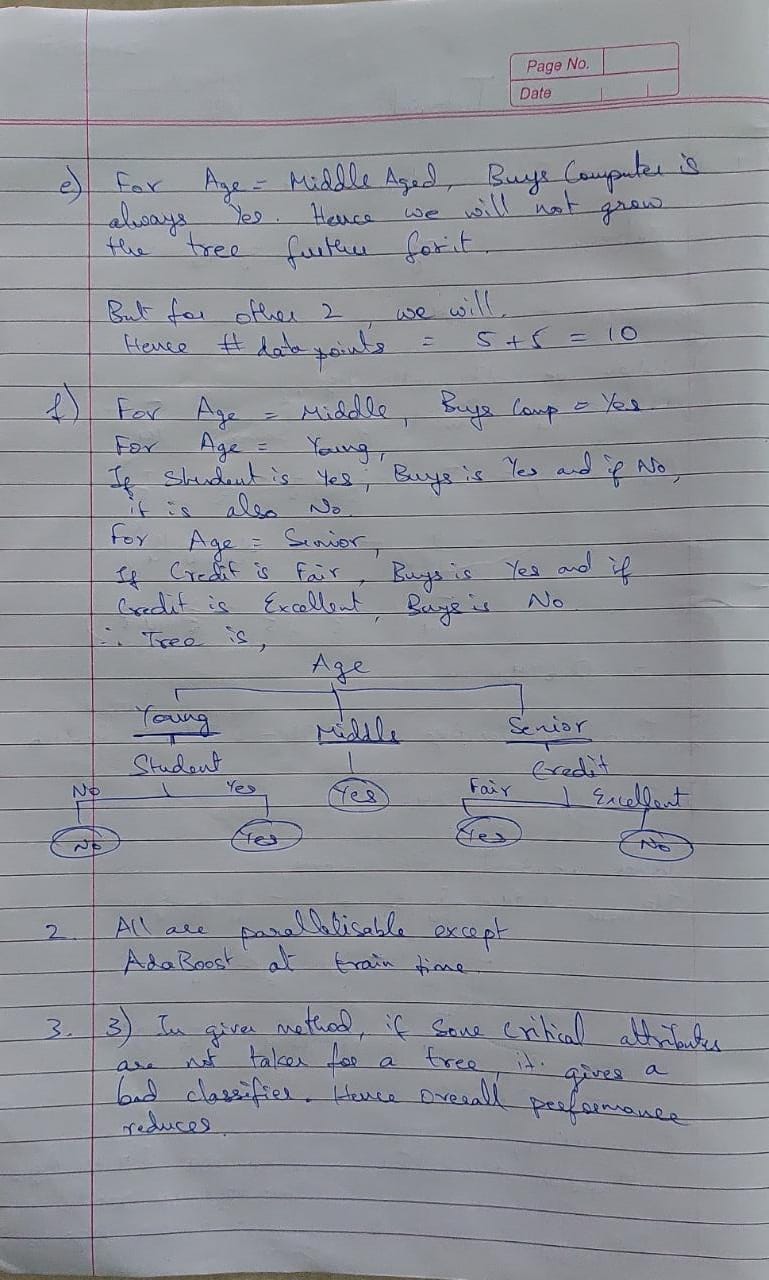 Page No.
Date
e) For Age = Middle Aged, Buys Computer is
always Yes. Hence we will not grow
the tree further for it.
But for other 2, we will.
Hence # data points = 5 + 5 = 10
f) For Age = Middle, Buys Comp = Yes
For Age = Young,
If Student is Yes, Buys is Yes and if No,
it is also No.
For Age = Senior,
If Credit is Fair, Buys is Yes and if
Credit is Excellent, Buys is No
∴ Tree is,
Age
Young Middle Senior
Student Credit
No Yes Yes Fair Excellent
No Yes Yes No
2. All are parallelisable except
AdaBoost at train time
3. 3) In given method, if some critical attributes
are not taken for a tree, it gives a
bad classifier. Hence overall performance
reduces